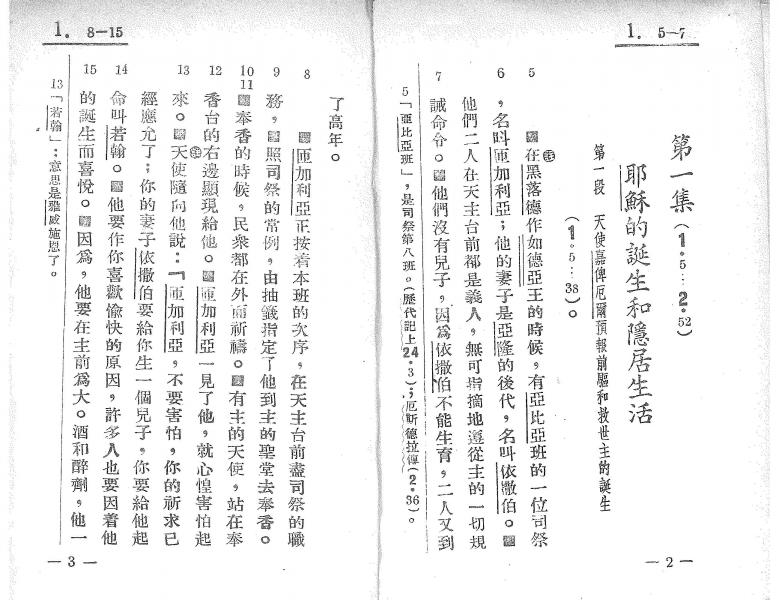 1. 5—7
第一集(1·5…2·52)
耶穌的誕生和隱居生活
第一段 天使嘉俾厄爾預報前驅和救世主的誕生
(1·5…38)。
5 在㊟黑落德作如德亞王的時候,有亞比亞班的一位司祭
6 ,名叫匝加利亞;他的妻子是亞隆的後代,名叫依撒伯。
他們二人在天主台前都是義人,無可指摘地遵從主的一切規
7 誡命令。他們沒有兒子,因爲依撒伯不能生育,二人又到
5「亞比亞班」,是司祭第八班。(歷代記上24·3);厄斯德拉傳(2·36)。
—2—
1. 8—15
了高年。
8 匝加利亞正按着本班的次序,在天主台前盡司祭的職
9 務,照司祭的常例,由抽籤指定了他到主的聖堂去奉香。
10 11 奉香的時候,民衆都在外面祈禱。有主的天使,站在奉
12 香台的右邊顯現給他。匝加利亞一見了他,就心惶害怕起
13 來。㊟天使隨向他說:「匝加利亞,不要害怕,你的祈求已
經應允了;你的妻子依撒伯要給你生一個兒子,你要給他起
14 命叫若翰。他要作你喜歡愉快的原因,許多人也要因着他
15 的誕生而喜悅。因爲,他要在主前爲大。酒和醉劑,他一
13「若翰」:意思是雅威施恩了。
—3—